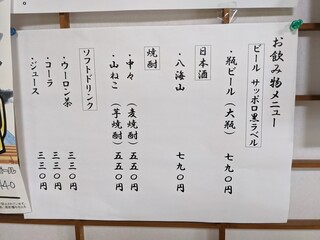 お飲み物メニュー
ビール サッポロ黒ラベル
・瓶ビール(大瓶) 七九〇円
日本酒
・八海山 七九〇円
焼酎
・中々 (麦焼酎) 五五〇円
・山ねこ (芋焼酎) 五五〇円
ソフトドリンク
・ウーロン茶 三三〇円
・コーラ 三三〇円
・ジュース 三三〇円